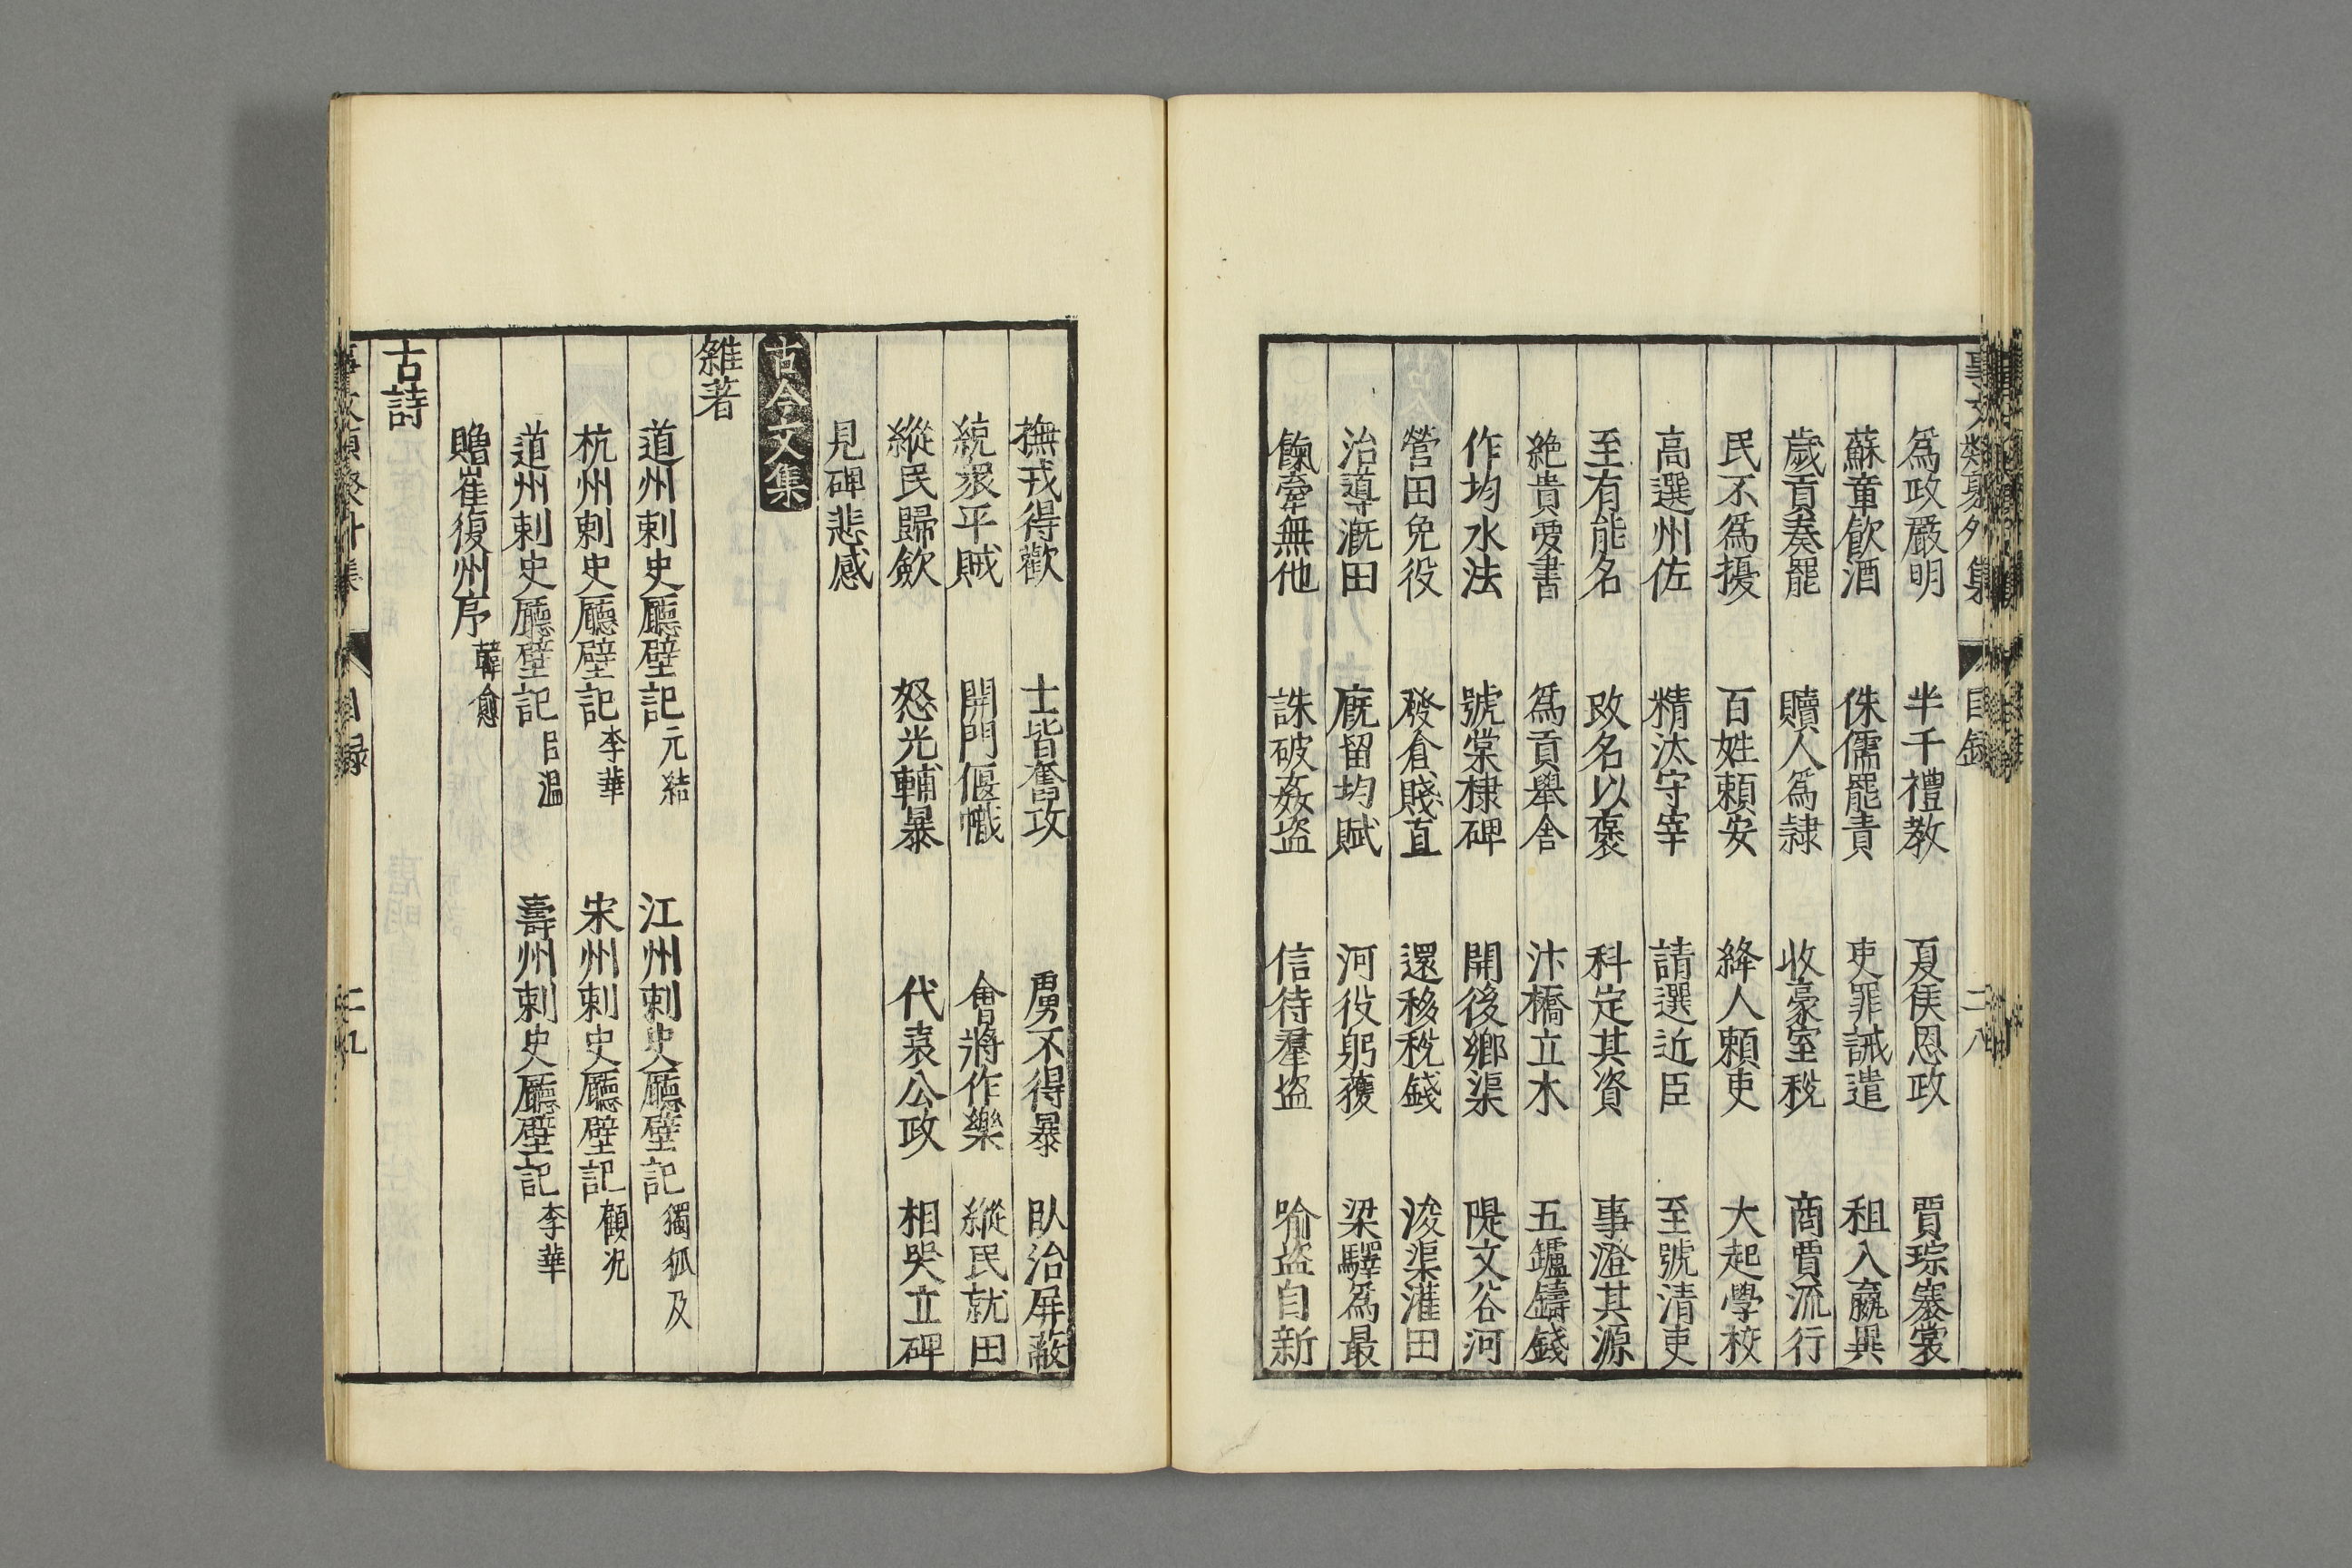 事文類聚外集 目錄 二八
爲政嚴明 半千禮教 夏侯恩政 賈琮褰裳
蘇章飮酒 侏儒罷責 吏罪誡遣 租入贏異
歲貢奏罷 贖人爲隷 收豪室稅 商賈流行
民不爲擾 百姓頼安 絳人頼吏 大起學校
高選州佐 精汰守宰 請選近臣 至號清吏
至有能名 改名以褒 科定其資 事澄其源
絶貴愛書 爲貢舉舍 汴橋立木 五鑪鑄錢
作均水法 號棠棣碑 開後鄉渠 隄文谷河
營田免役 發倉賤直 還移稅錢 浚渠灌田
治導漑田 廐留均賦 河役躬護 梁驛爲最
餼牽無他 誅破姦盜 信待羣盜 喻盜自新
撫戎得歡 士皆奮攻 虜不得暴 臥治屏蔽
統衆平賊 開門偃幟 會將作樂 縱民就田
縱民歸歛 怒光輔暴 代袁公政 相哭立碑
見碑悲感
古今文集
雜著
道州刺史廳壁記 元結 江州刺史廳壁記 獨狐及
杭州刺史廳壁記 李華 宋州刺史廳壁記 顧况
道州刺史廳壁記 呂温 壽州刺史廳壁記 李華
贈崔復州序 韓愈
古詩
事文類聚外集 目録 二九